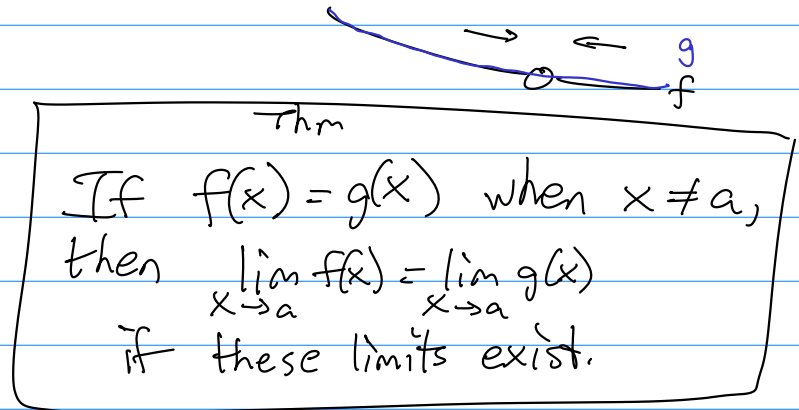 g
f
Thm
If f(x) = g(x) when x ≠ a,
then lim f(x) = lim g(x)
x→a x→a
if these limits exist.